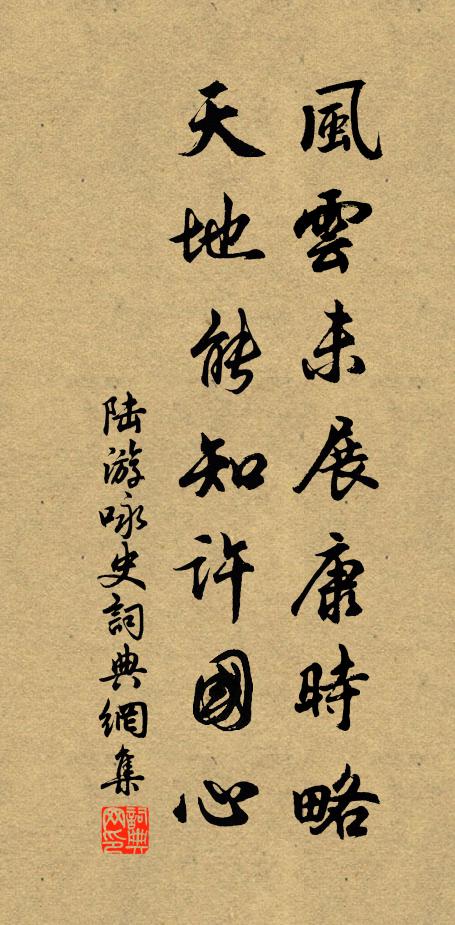 風雲未展康時略
天地能知許國心
陆游咏史詞典網集
詞典网印